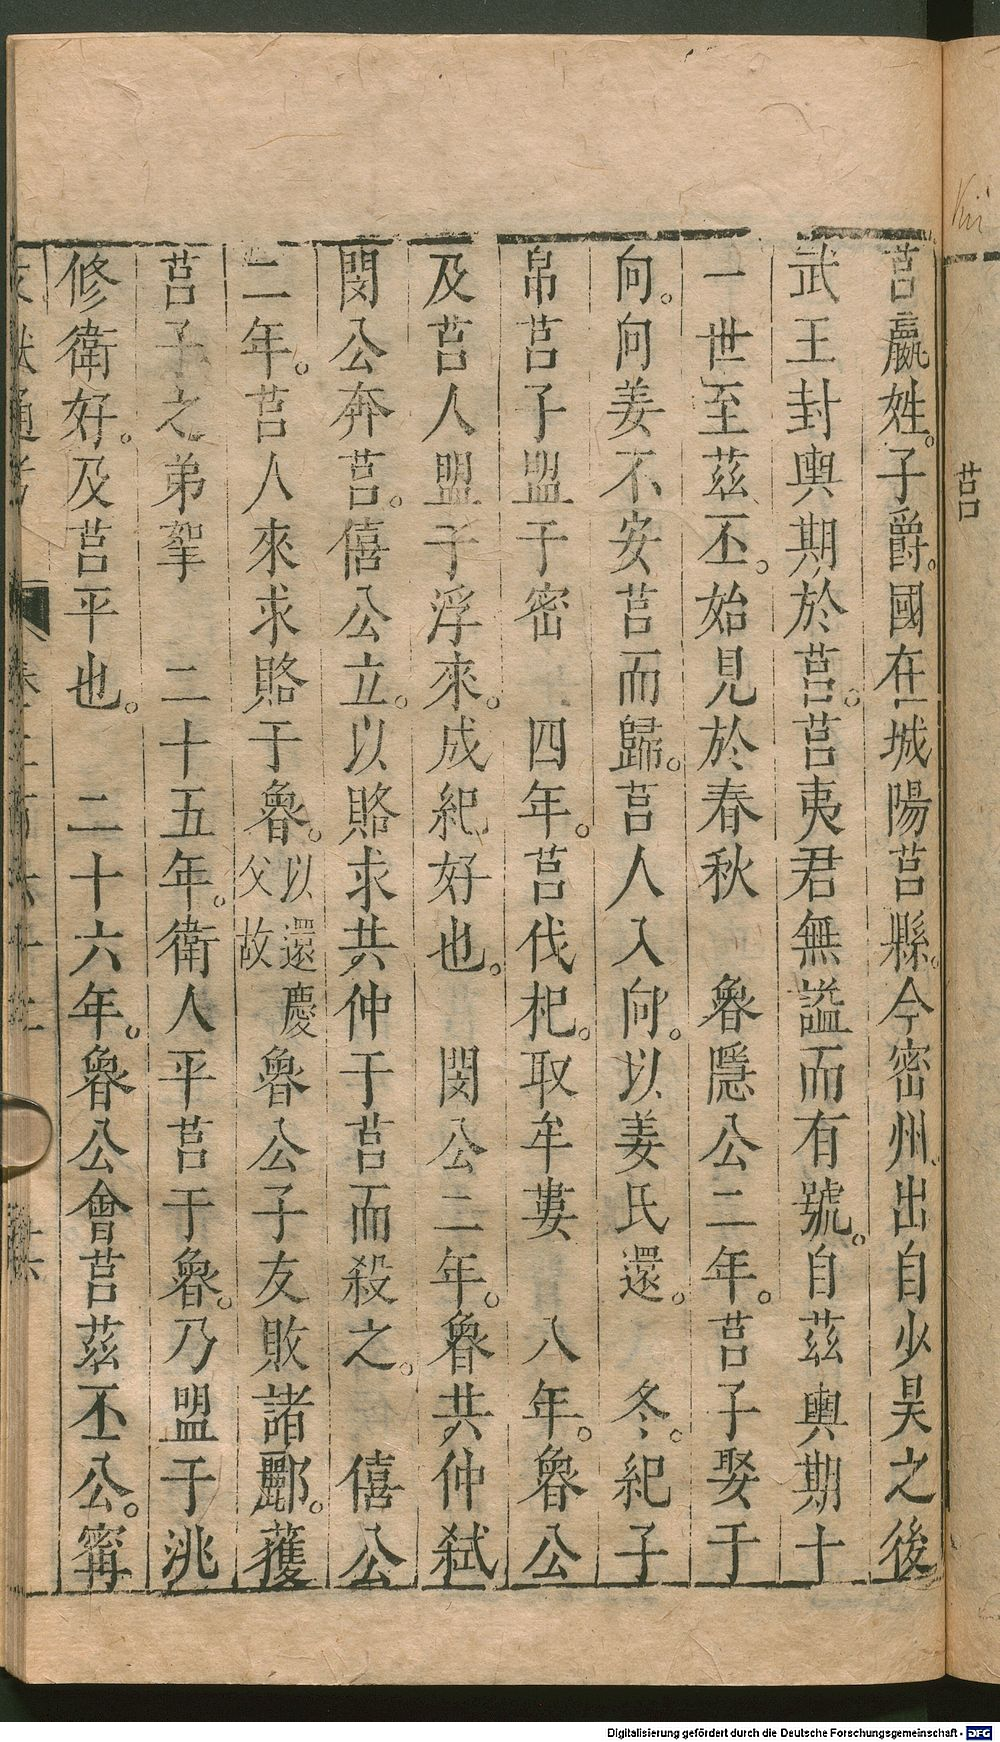 莒
莒嬴姓。子爵。國在城陽莒縣。今密州。出自少昊之後
武王封輿期於莒。莒夷君無謚而有號。自茲輿期十
一世至茲丕。始見於春秋　魯隱公二年。莒子娶于
向。向姜不安莒而歸。莒人入向。以姜氏還。　冬。紀子
帛莒子盟于密　四年。莒伐杞。取牟婁　八年。魯公
及莒人盟于浮來。成紀好也。　閔公二年。魯共仲弑
閔公奔莒。僖公立。以賂求共仲于莒而殺之。　僖公
二年。莒人來求賂于魯。以還慶父故魯公子友敗諸酈。獲
莒子之弟挐　二十五年。衛人平莒于魯。乃盟于洮
修衛好。及莒平也。　二十六年。魯公會莒茲丕公。甯
Digitalisierung gefördert durch die Deutsche Forschungsgemeinschaft - DFG